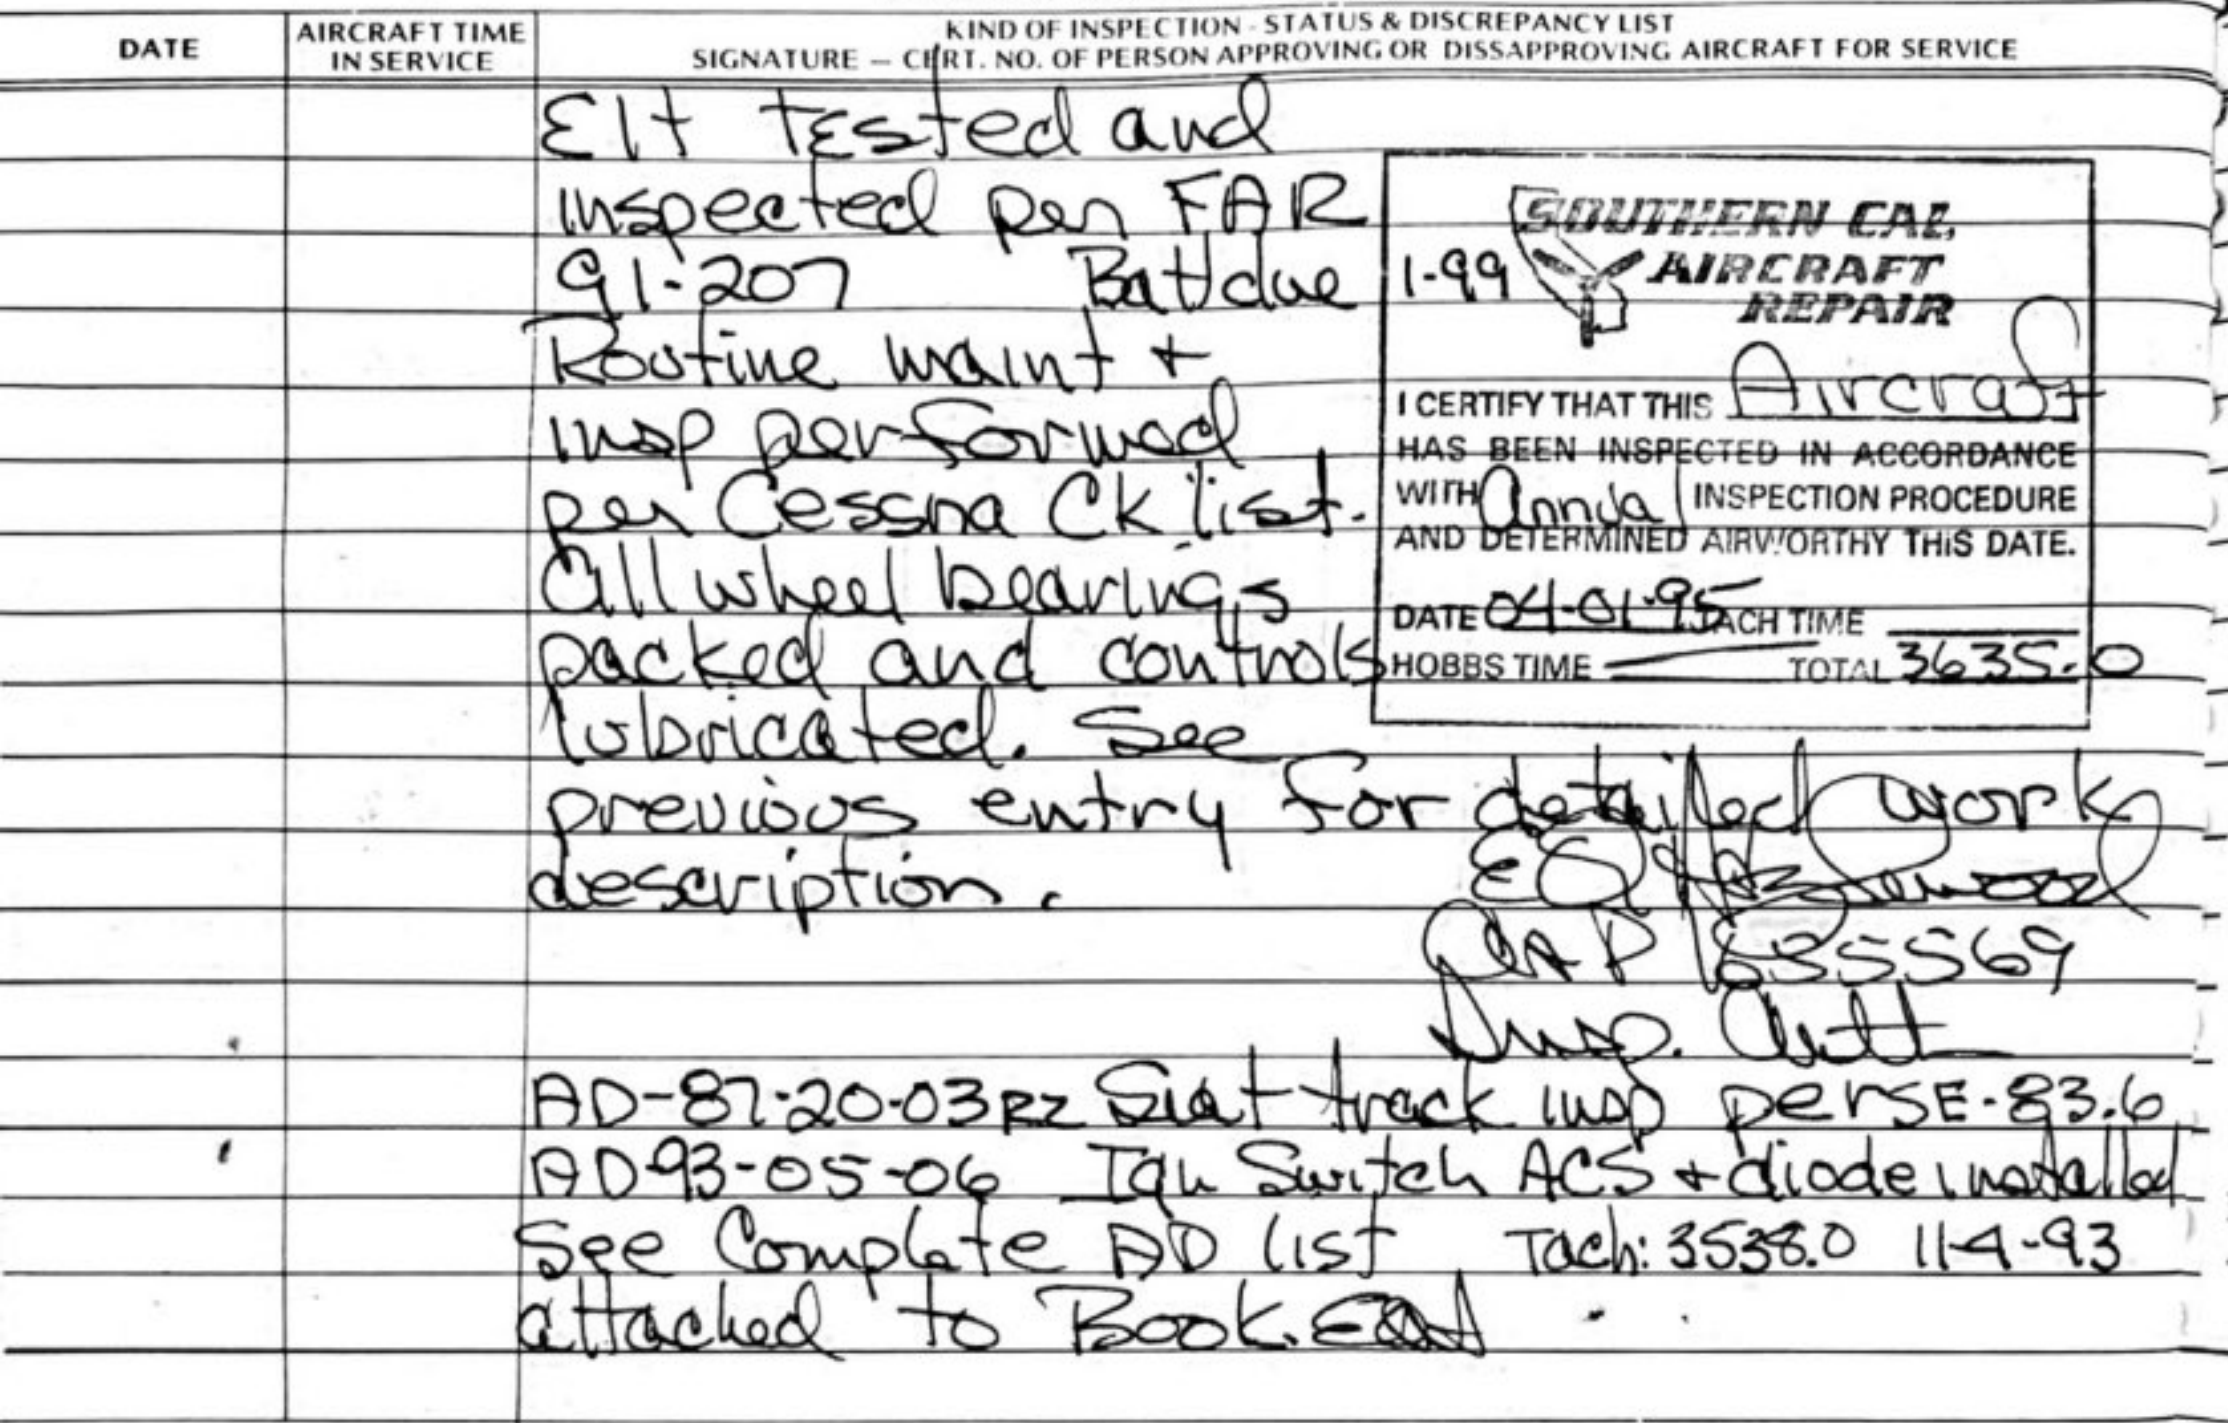 DATE
AIRCRAFT TIME
IN SERVICE
KIND OF INSPECTION - STATUS & DISCREPANCY LIST
SIGNATURE — CERT. NO. OF PERSON APPROVING OR DISSAPPROVING AIRCRAFT FOR SERVICE
Elt Tested and
inspected per FAR
91-207 Batt due 1-99
Routine maint +
insp performed
per Cessna Ck list.
All wheel bearings
packed and controls
lubricated. See
previous entry for detailed work
description.
SOUTHERN CAL
AIRCRAFT
REPAIR
I CERTIFY THAT THIS Aircraft
HAS BEEN INSPECTED IN ACCORDANCE
WITH Annual INSPECTION PROCEDURE
AND DETERMINED AIRWORTHY THIS DATE.
DATE 04-01-95 TACH TIME
HOBBS TIME — TOTAL 3635.0
A&P 535569
Insp. Auth
AD-87-20-03R2 Seat track insp per SE-83.6
AD93-05-06 Ign Switch ACS + diode installed
See Complete AD list Tach: 3538.0 11-4-93
attached to Book.